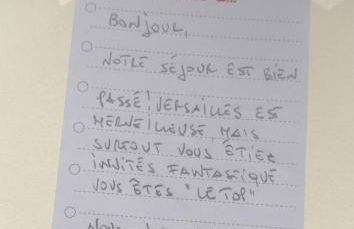 BONJOUR,
NOTRE SÉJOUR EST BIEN
PASSÉ! VERSAILLES EST
MERVEILLEUSE, MAIS
SURTOUT VOUS ÊTIEZ
INVITÉS FANTASTIQUE
VOUS ÊTES "LE TOP"